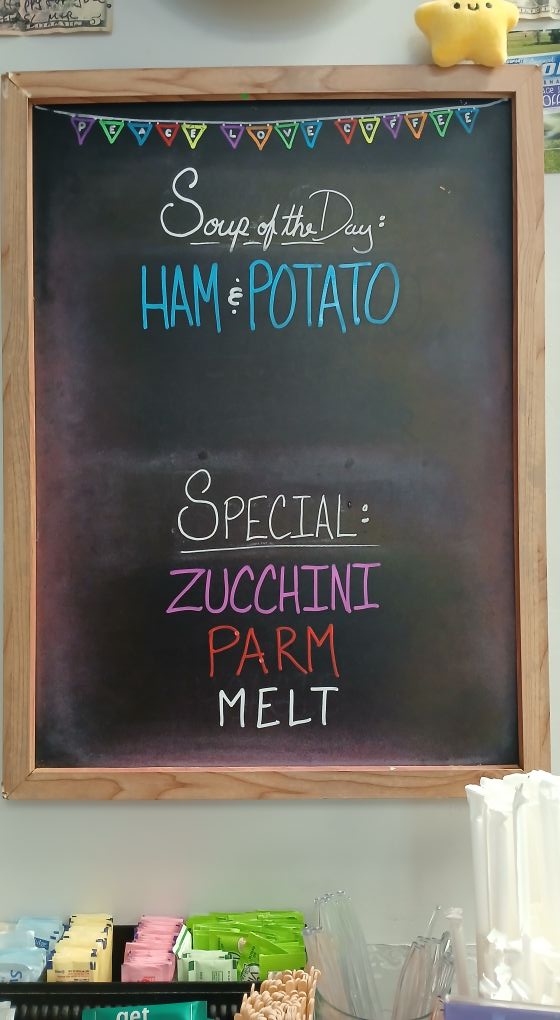 PEACE LOVE COFFEE
Soup of the Day:
HAM & POTATO
SPECIAL:
ZUCCHINI
PARM
MELT
get